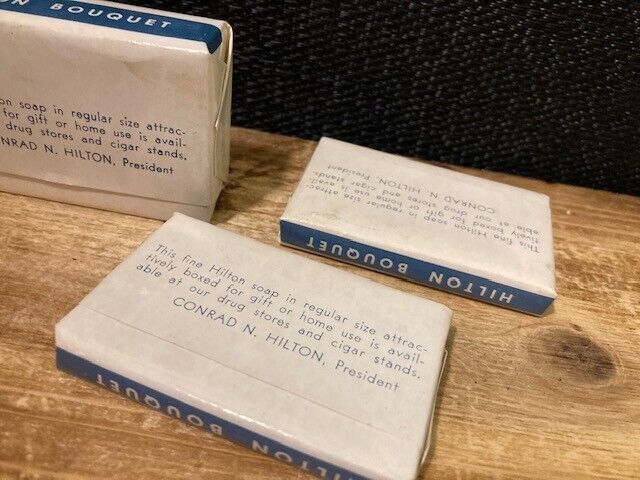 ON BOUQUET
on soap in regular size attrac-
for gift or home use is avail-
drug stores and cigar stands.
NRAD N. HILTON, President
This fine Hilton soap in regular size attrac-
tively boxed for gift or home use is avail-
able at our drug stores and cigar stands.
CONRAD N. HILTON, President
HILTON BOUQUET
This fine Hilton soap in regular size attrac-
tively boxed for gift or home use is avail-
able at our drug stores and cigar stands.
CONRAD N. HILTON, President
HILTON BOUQUET